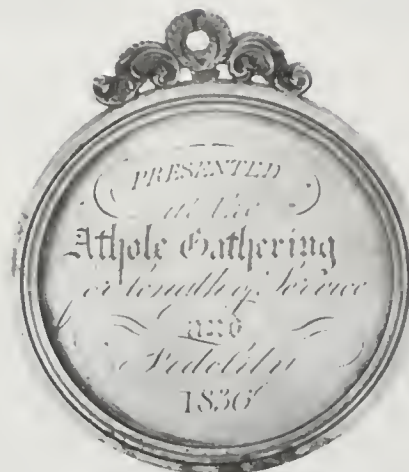 PRESENTED
at the
Athole Gathering
for length of Service
and
Fidelity
1836